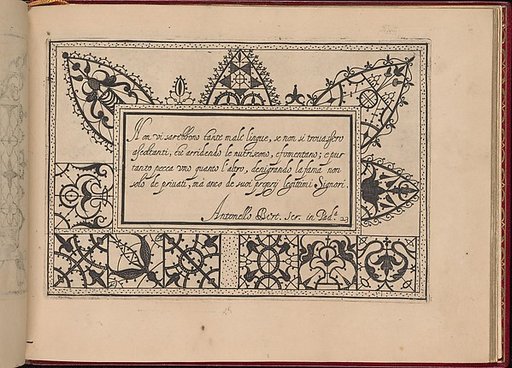 Non vi sarebbono tante male lingue, se non si trouassero
ascoltanti, che arridendo le nutriscono, e fomentano; e pur
tanto pecca uno quanto l'altro, denigrando la fama non
solo de priuati, ma anco de suoi proprÿ legittimi Signori.
Antonello Bert. Scr. in Pad.ª 23